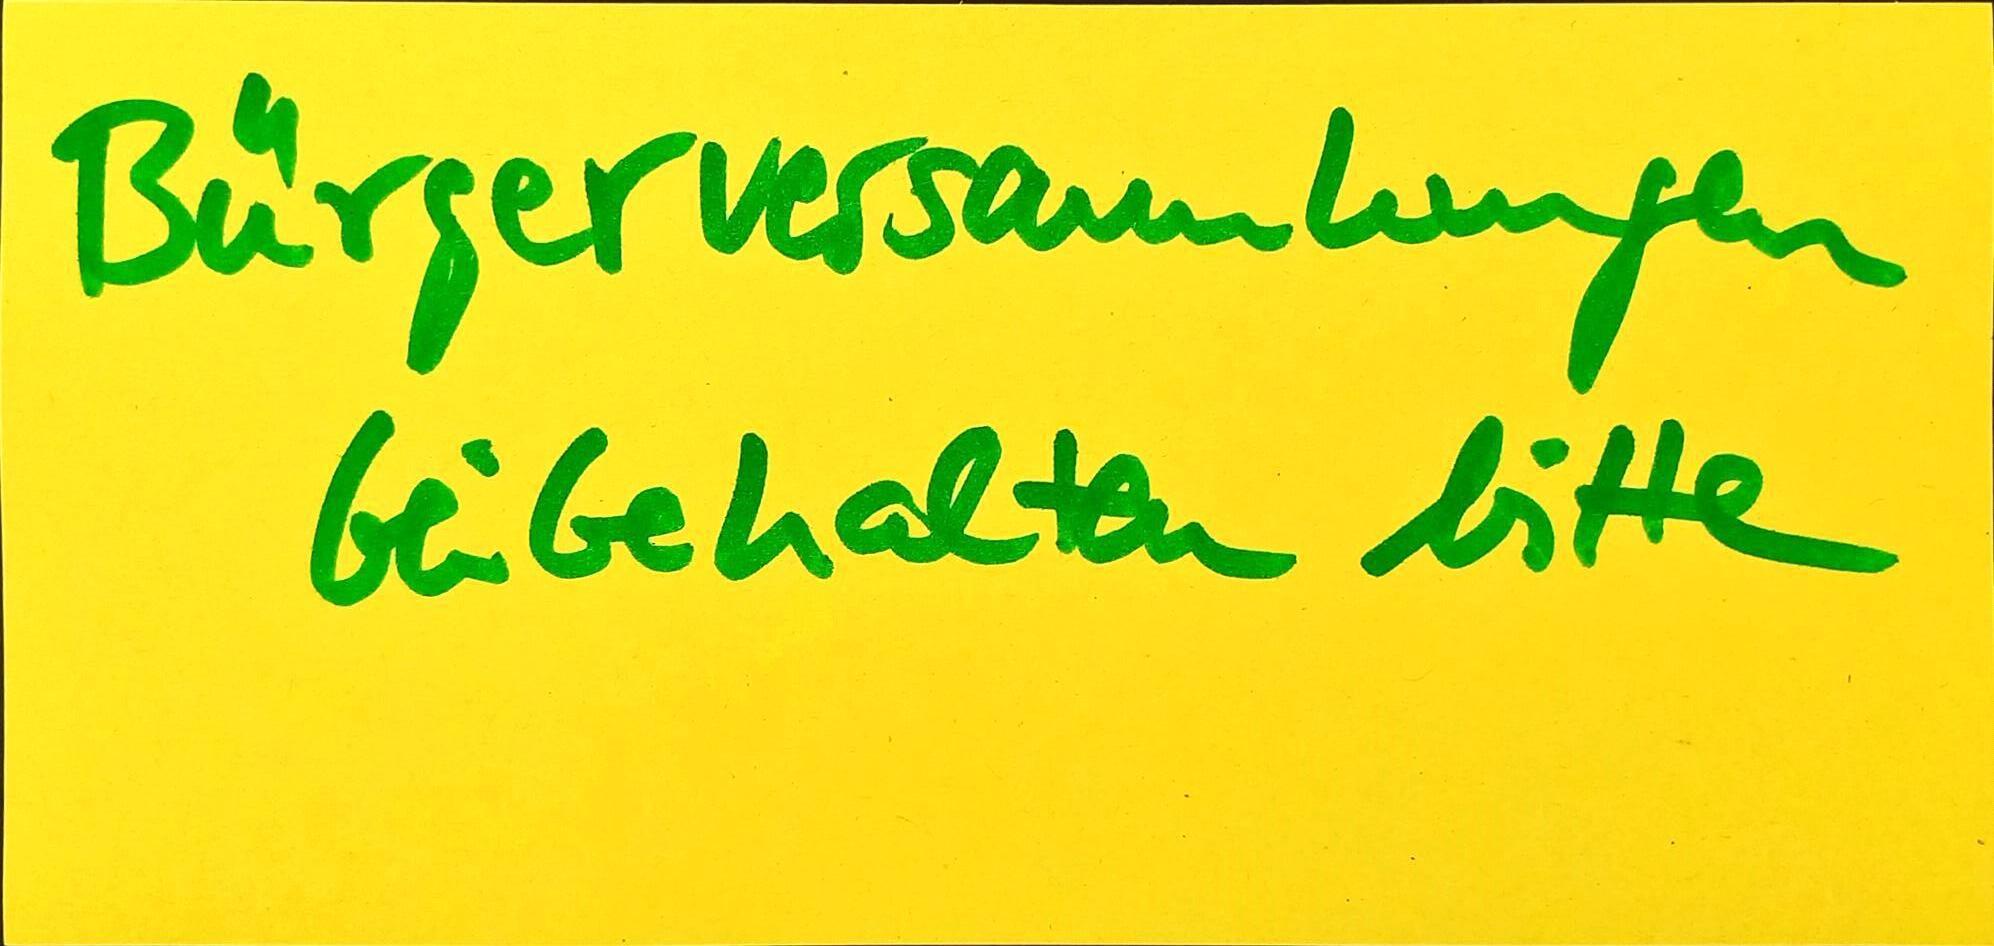 Bürgerversammlungen
beibehalten bitte